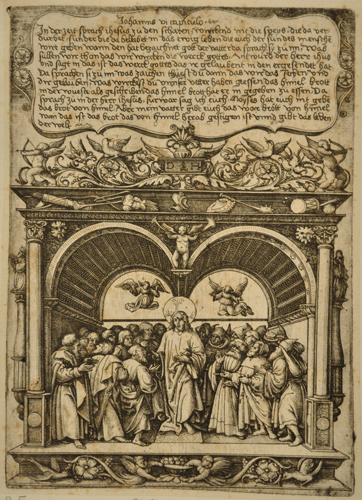 Iohannis vi capitulo
In der zeit sprach ihesus zu den scharen wurckend nit die speys die da ver
durbet sunder die da beleibt in das ewig leben die euch der sun des mensche
wirt geben wann den hat bezaichnet got der vatter da sprachen sy zu im Was
sullen wir thon das wir wurcken die werck gottes Antwurt der herr ihus
vnd sagt in das ist das werck gottes das ir gelaubent in den er gesendet hat
Da sprachen sy zu im was zaichen thust du dann das wir das sehen vnd
dir gelauben was wurckest du unser vatter haben geessen das himel brott
in der wuste als geschriben das himel brott hat er in gegeben zu essen Da
sprach zu in der herr ihesus fur war sag ich euch Moyses hat euch nit gebe
das brot von himel Aber mein vatter gibt euch das war brott von himel
wan das ist das brot das von himel herab gestigen ist vnnd gibt das leben
der welt
D H